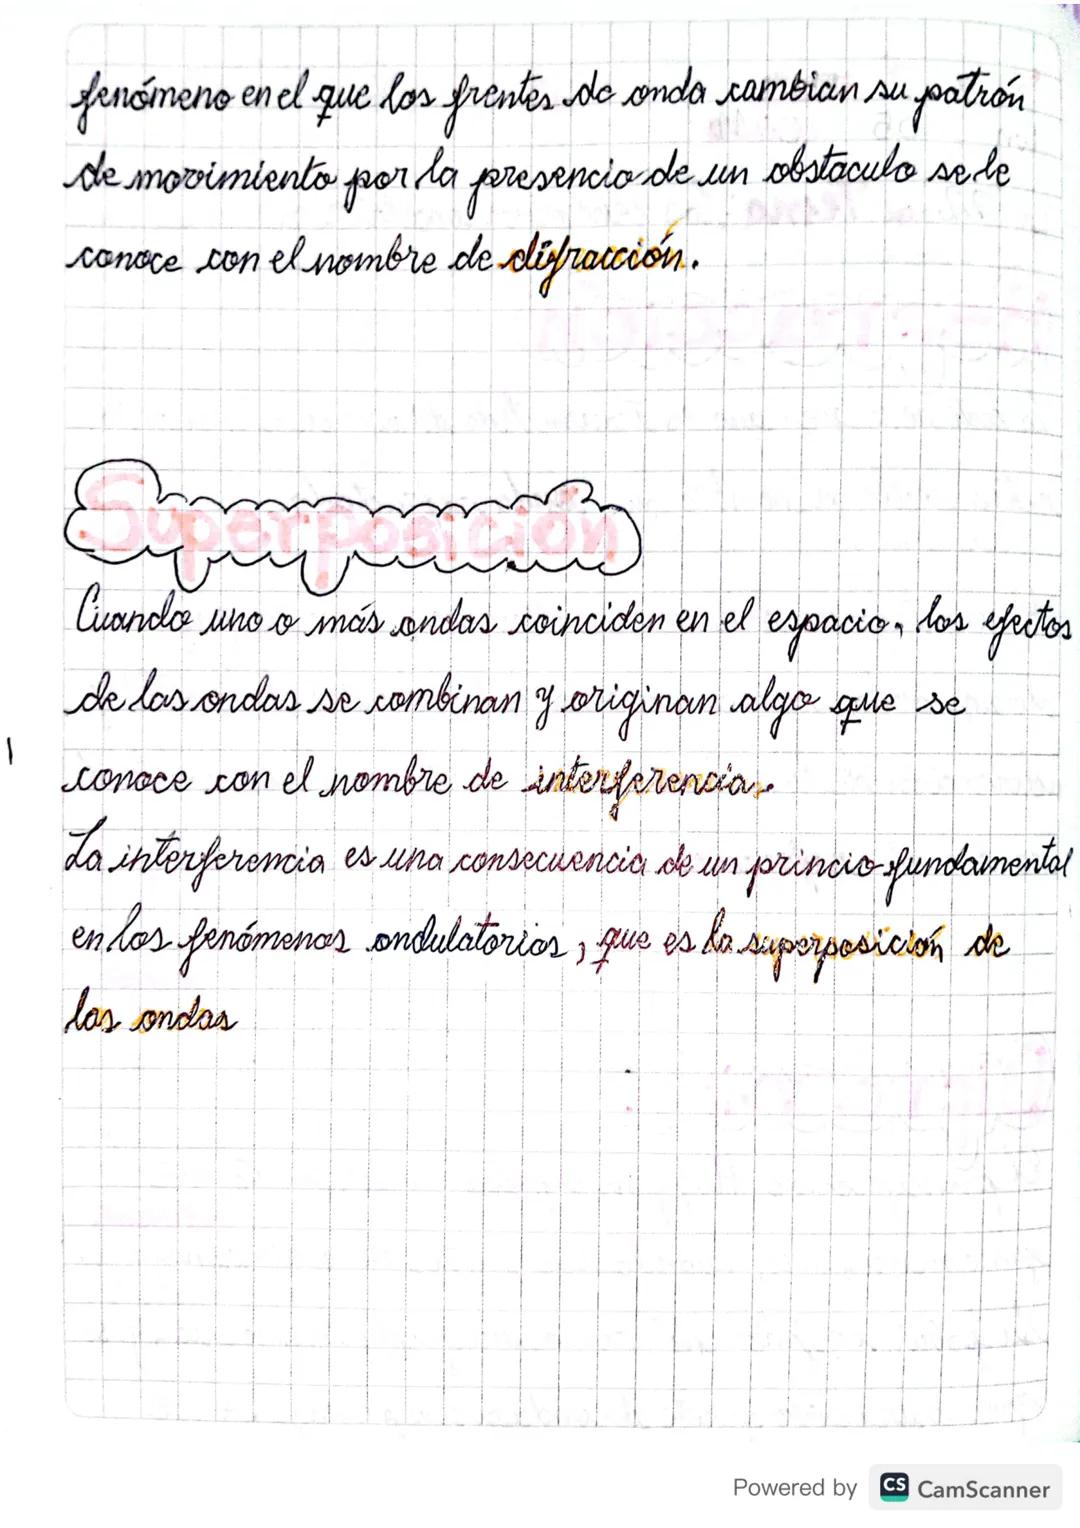 fenómeno en el que los frentes de onda cambian su patrón
de movimiento por la presencia de un obstaculo se le
conoce con el nombre de difracción.
Superposición
Cuando uno o más ondas coinciden en el espacio, los efectos
de las ondas se combinan y originan algo que se
conoce con el nombre de interferencia.
La interferencia es una consecuencia de un princio fundamental
en los fenómenos ondulatorios, que es la superposición de
las ondas
Powered by CS CamScanner